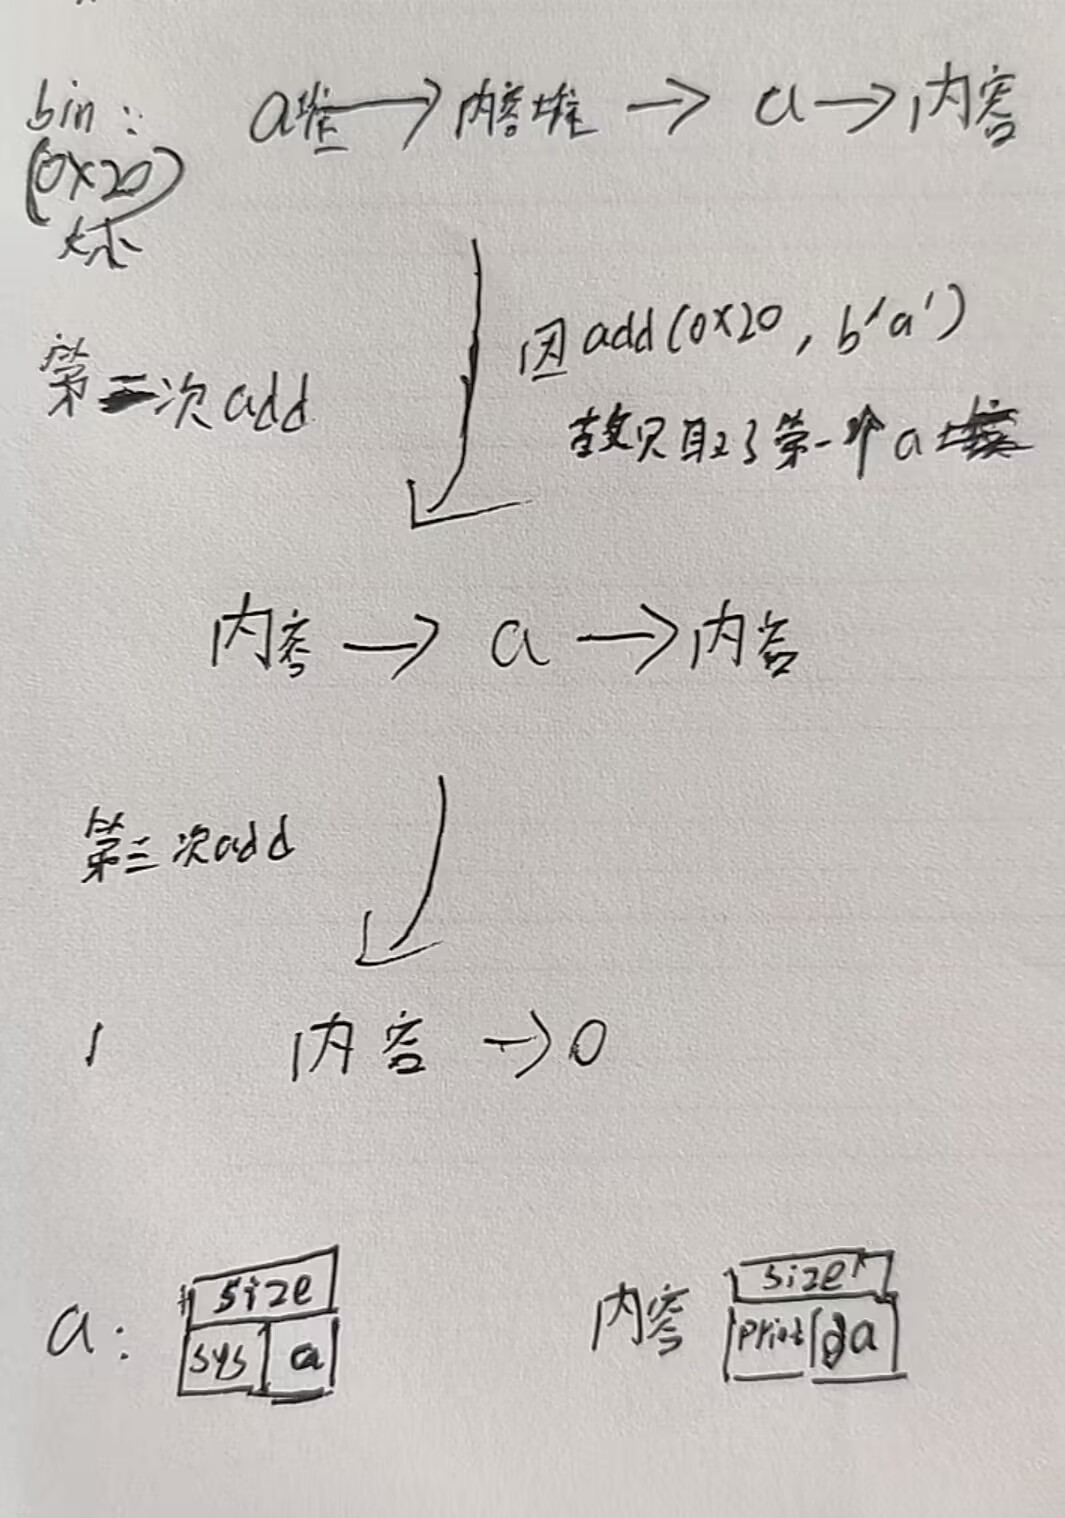 bin: a堆→内容堆→a→内容
(0x20)
大小
因add(0x20, b'a')
第二次add
故只取了第一个a
内容→a→内容
第三次add
内容→0
a: size
sys a
内容 size
print a